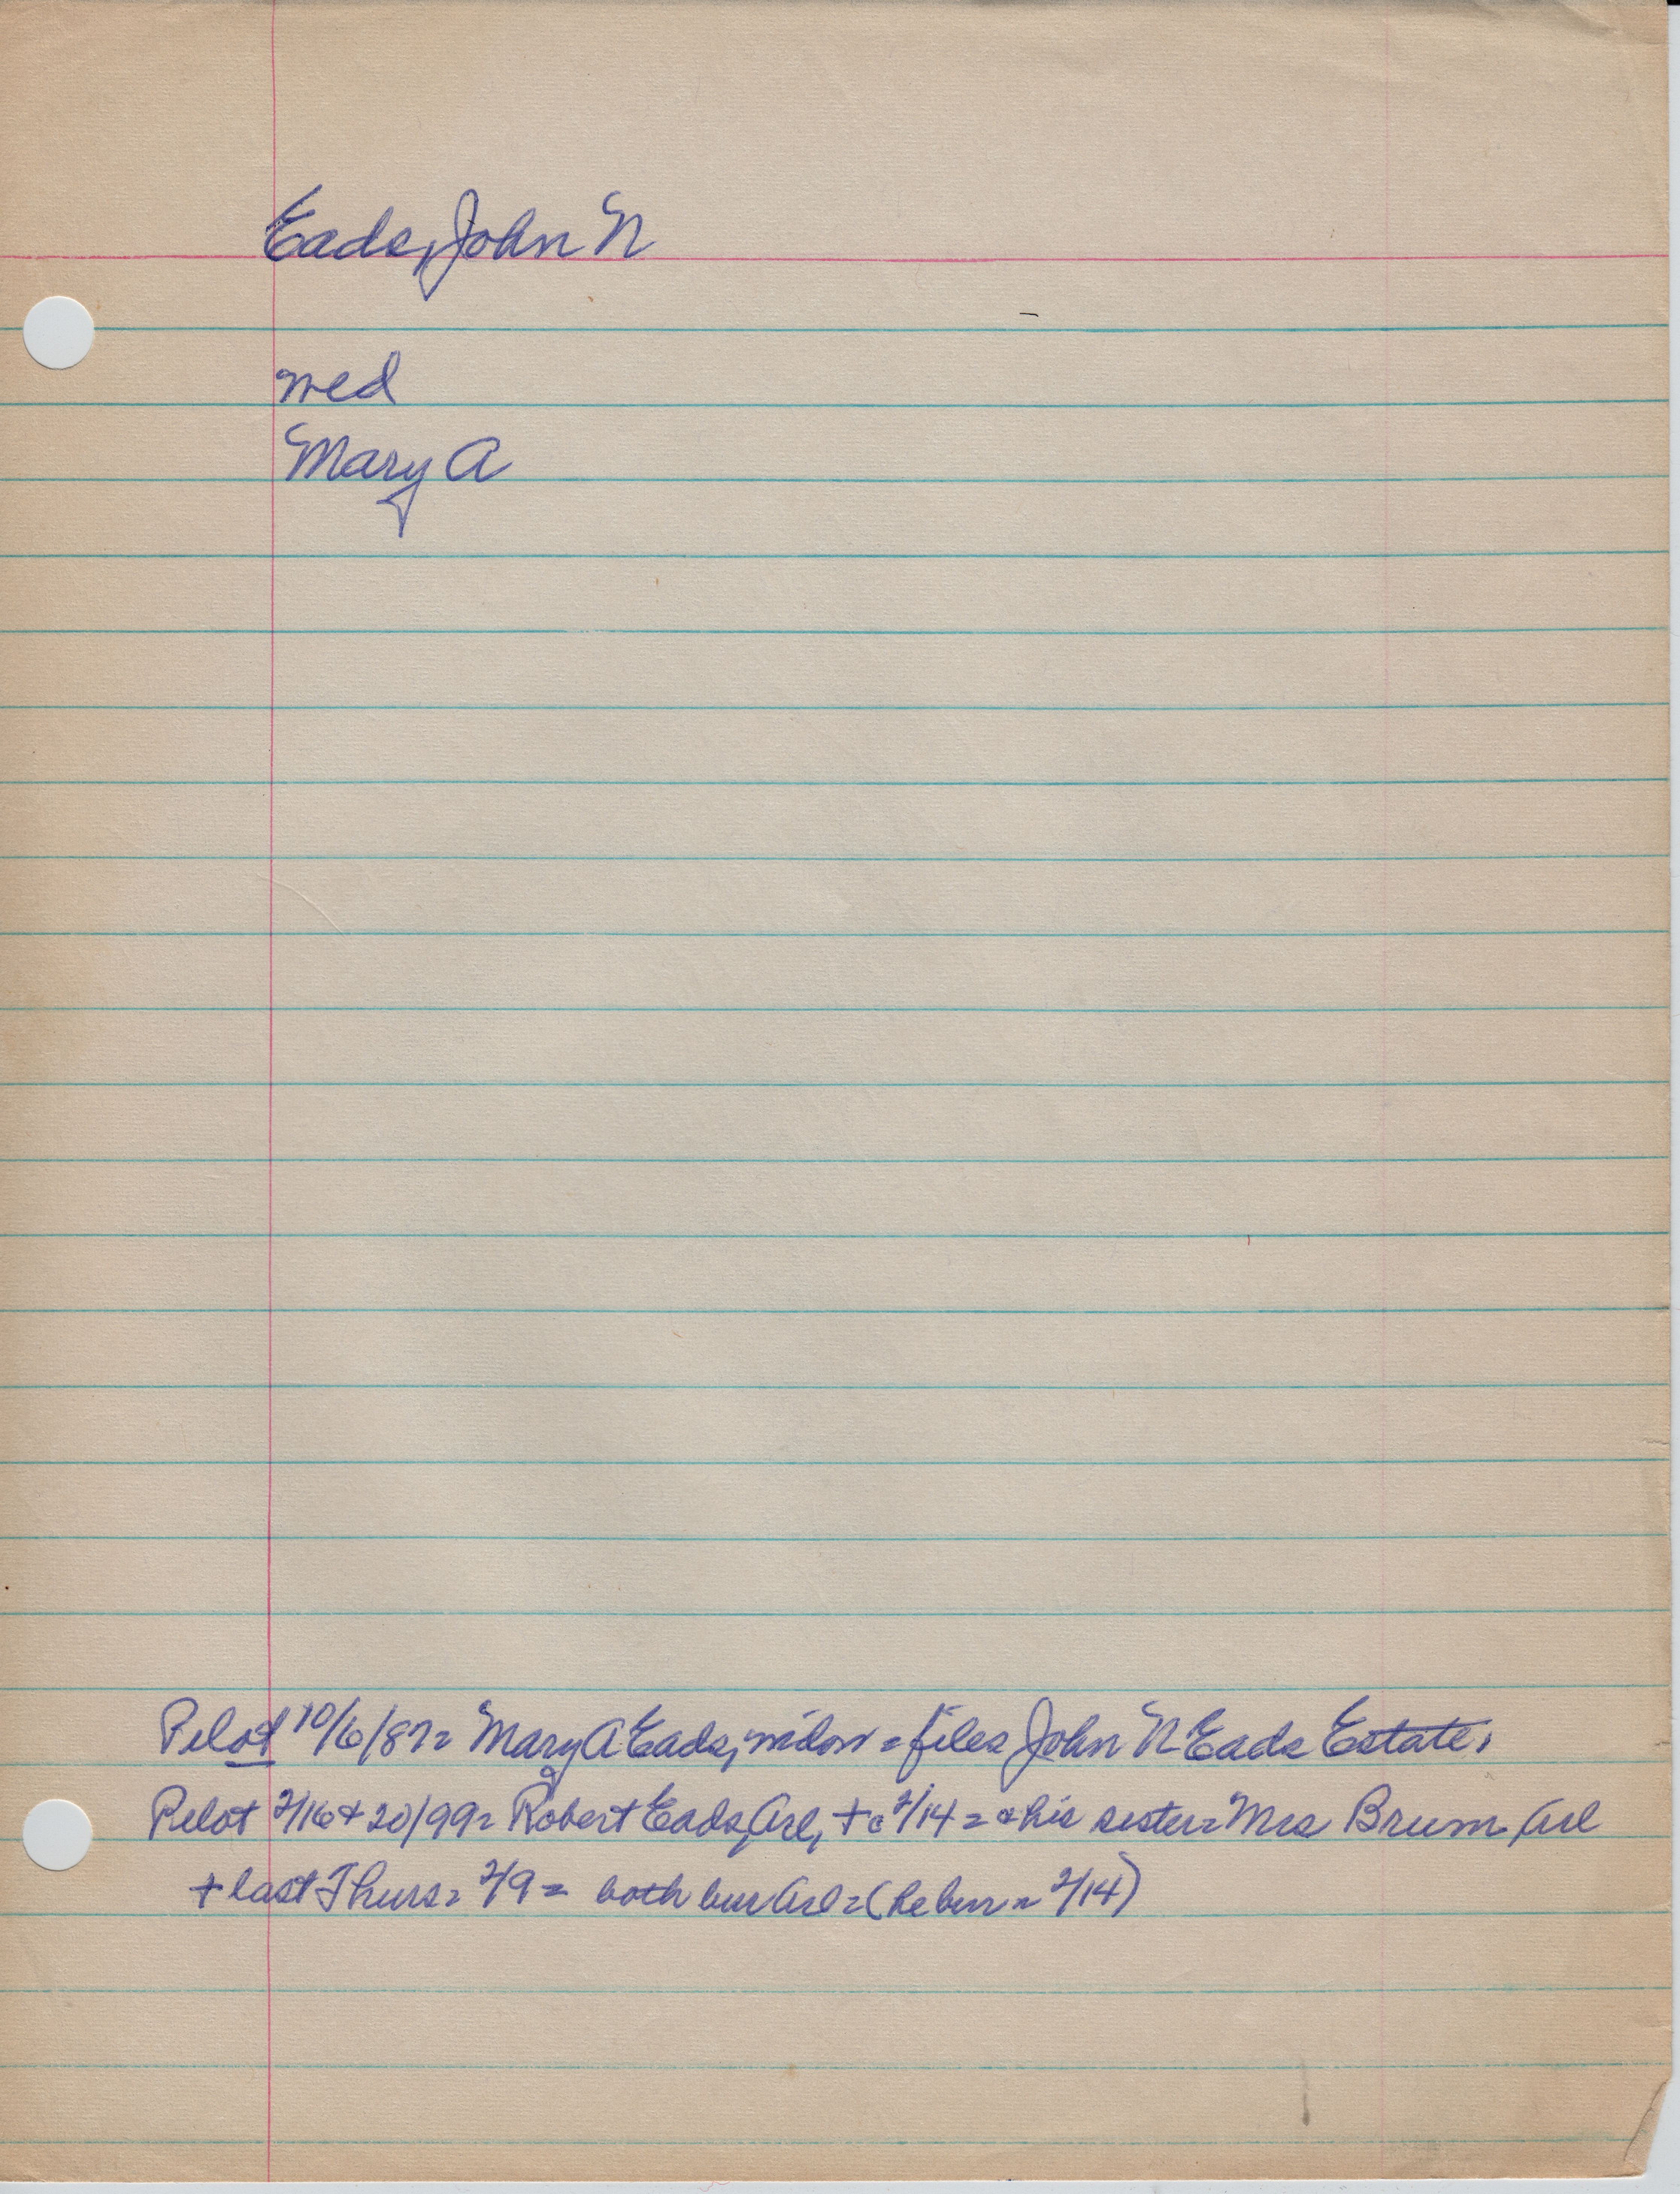 Eads, John N
med
Mary A
Pilot 10/6/87= Mary A Eads, widow = files John N Eads Estate.
Pilot 2/16+20/99= Robert Eads, Arl, + c 2/14 = & his sister= Mrs Brum Arl
+ last Thurs= 2/9 = both bur Arl = (he bur = 2/14)